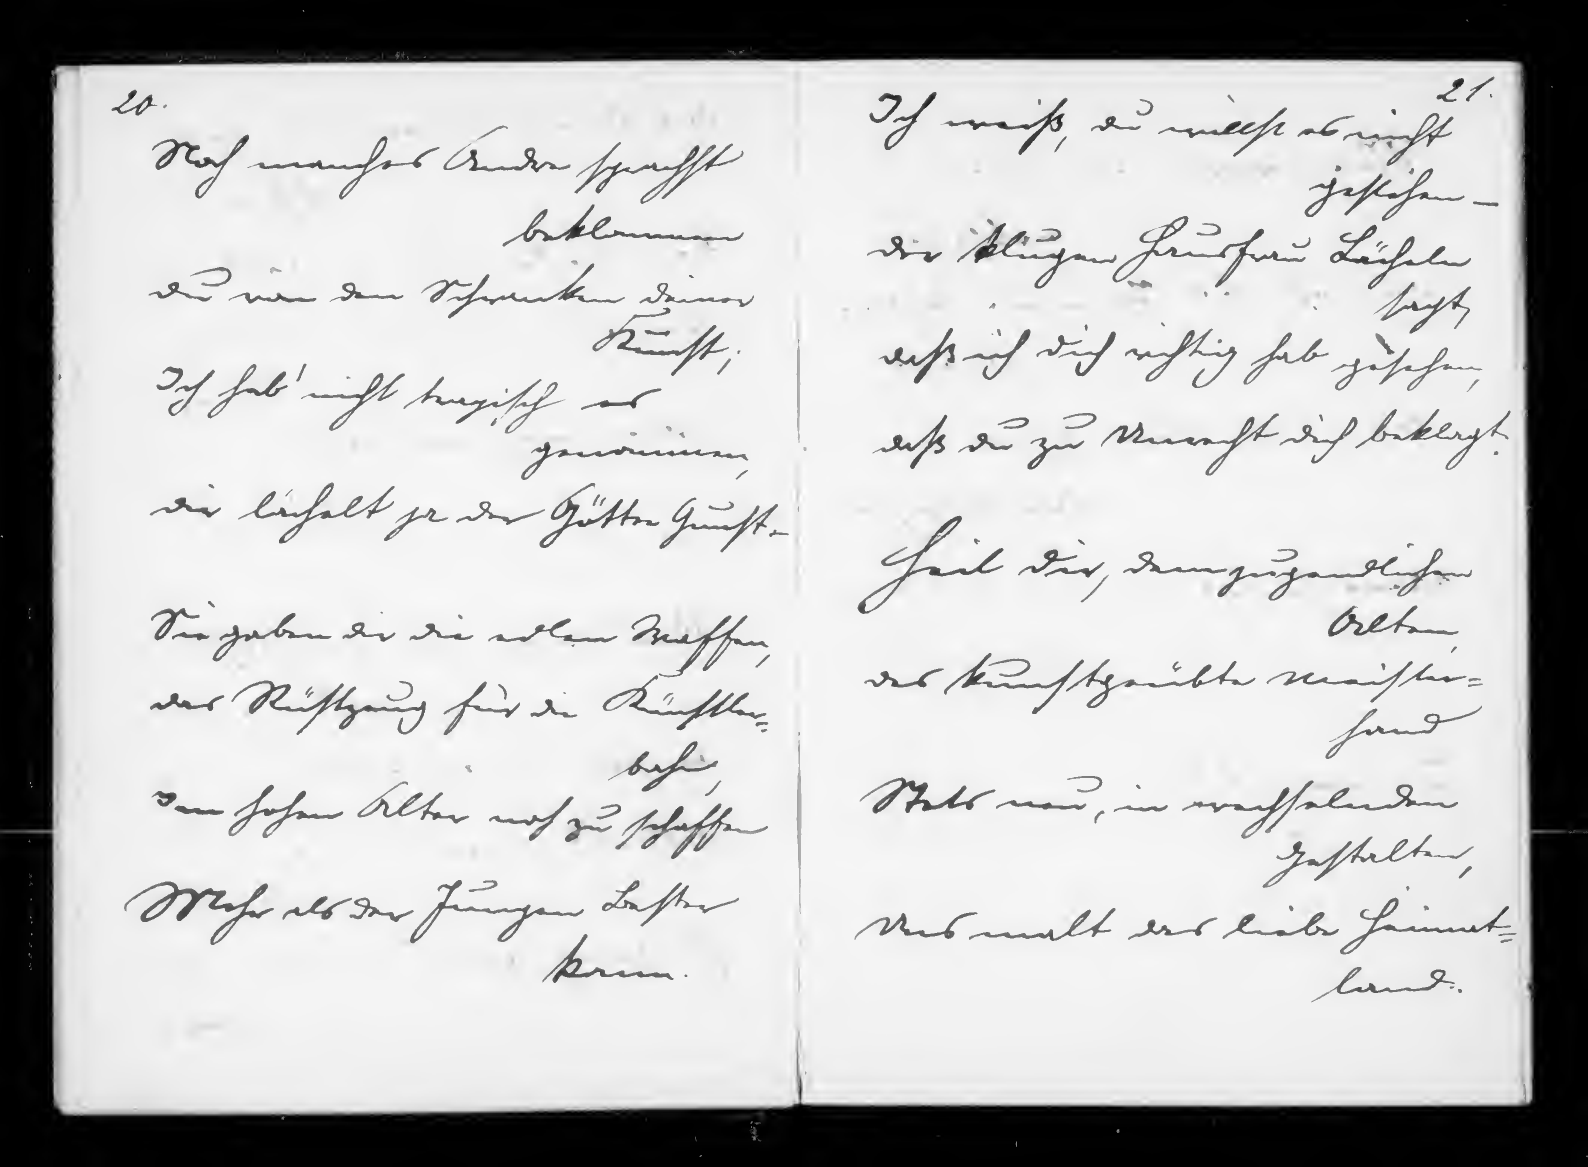 20.
Noch manches Andre sprachst
beklommen
du von den Schranken deiner
Kunst;
Ich hab' nicht tragisch es
genommen,
dir lächelt ja der Götter Gunst.
Sie gaben dir die edlen Waffen,
das Rüstzeug für die Künstler=
bahn,
Im hohen Alter noch zu schaffen
Mehr als der Jungen Bester
kann.
21.
Ich weiß, du willst es nicht
gestehen –
der klugen Hausfrau Lächeln
sagt,
daß ich dich richtig hab gesehen,
daß du zu Unrecht dich beklagt.
Heil dir, dem jugendlichen
Alten,
des kunstgeübte Meister=
hand
Stets neu, in wechselnden
Gestalten,
Uns malt das liebe Heimat=
land.